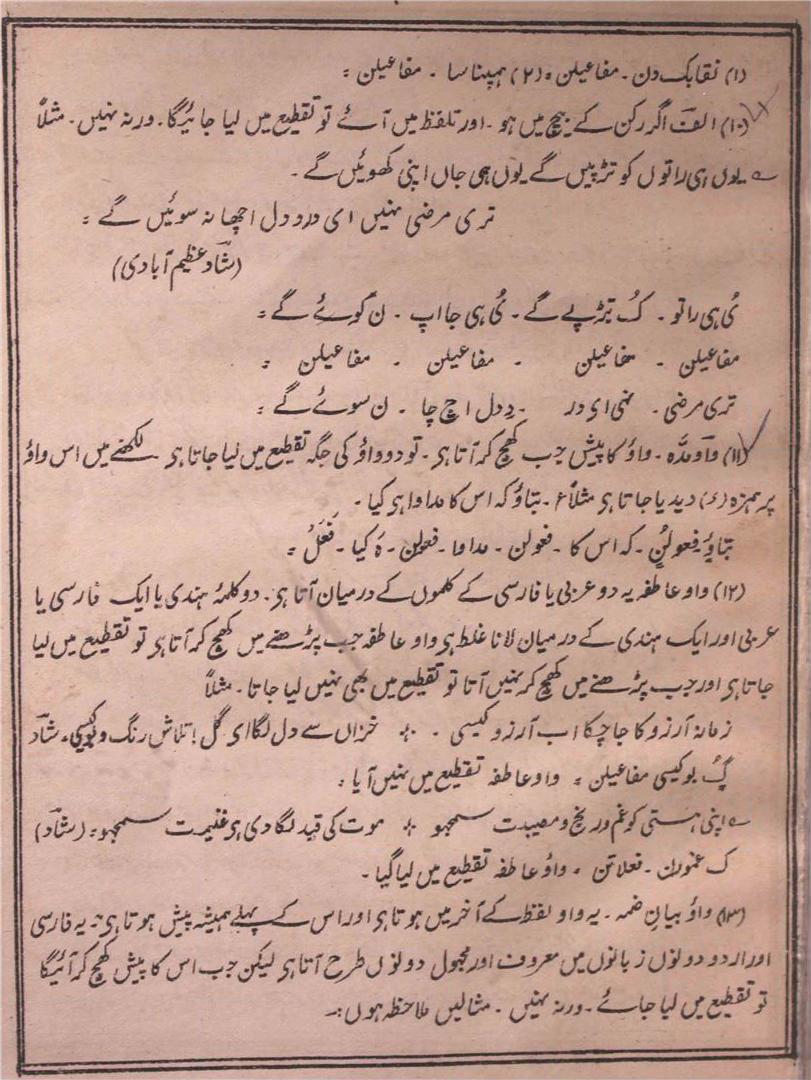 (۱) نقابک دن ۔ مفاعیلن ؞ (۲) ہمپنا سا ۔ مفاعیلن ؞
(۱۰) الف اگر رکن کے بیچ میں ہو ۔ اور تلفظ میں آئے تو تقطیع میں لیا جائیگا ۔ ورنہ نہیں ۔ مثلاً
یوں ہی راتوں کو تڑپیں گے یوں ہی جاں اپنی کھوئیں گے ۔
تری مرضی نہیں ای درد دل اچھا نہ سوئیں گے ؞
(شاد عظیم آبادی)
یُ ہی راتو ۔ کُ تڑپے گے ۔ یُ ہی جا اپ ۔ نِ کوئے گے ؞
مفاعیلن ۔ مفاعیلن ۔ مفاعیلن ۔ مفاعیلن ؞
تری مرضی ۔ نہی ای در ۔ دِ دل اچ چا ۔ ن سوئے گے ؞
(۱۱) واو مدّہ ۔ واؤ کا پیش جب کھچ کر آتا ہی ۔ تو دو واؤ کی جگہ تقطیع میں لیا جاتا ہی لکھنے میں اس واؤ
پر ہمزہ (ء) دیدیا جاتا ہی مثلاً ع ۔ بتاؤ کہ اس کا مداوا ہی کیا ۔
بتاوُ فعولن ۔ کہ اس کا ۔ فعولن ۔ مداوا ۔ فعولن ۔ ہ کیا ۔ فَعَلْ ؞
(۱۲) واو عاطفہ یہ دو عربی یا فارسی کے کلموں کے درمیان آتا ہی ۔ دو کلمۂ ہندی یا ایک فارسی یا
عربی اور ایک ہندی کے درمیان لانا غلط ہی واو عاطفہ جب پڑھنے میں کھچ کر آتا ہی تو تقطیع میں لیا
جاتا ہی اور جب پڑھنے میں کھچ کر نہیں آتا تو تقطیع میں بھی نہیں لیا جاتا ۔ مثلاً
زمانہ آرزو کا جا چکا اب آرزو کیسی ۔ ؞ خزاں سے دل لگا ای گل ! تلاش رنگ و بو کیسی ۔ شاد
گُ بو کیسی مفاعیلن ؞ واو عاطفہ تقطیع میں نہیں آیا ؞
اپنی ہستی کو غم و رنج و مصیبت سمجھو ؞ موت کی قید لگا دی ہی غنیمت سمجھو ؞ (شاد)
ک غمورن ۔ فعلاتن ؞ واؤ عاطفہ تقطیع میں لیا گیا ۔
(۱۳) واؤ بیان ضمہ ۔ یہ واو لفظ کے آخر میں ہوتا ہی اور اس کے پہلے ہمیشہ پیش ہوتا ہی ۔ یہ فارسی
اور اردو دونوں زبانوں میں معروف اور مجہول دونوں طرح آتا ہی لیکن جب اس کا پیش کھچ کر آئیگا
تو تقطیع میں لیا جائے ۔ ورنہ نہیں ۔ مثالیں ملاحظہ ہوں :۔